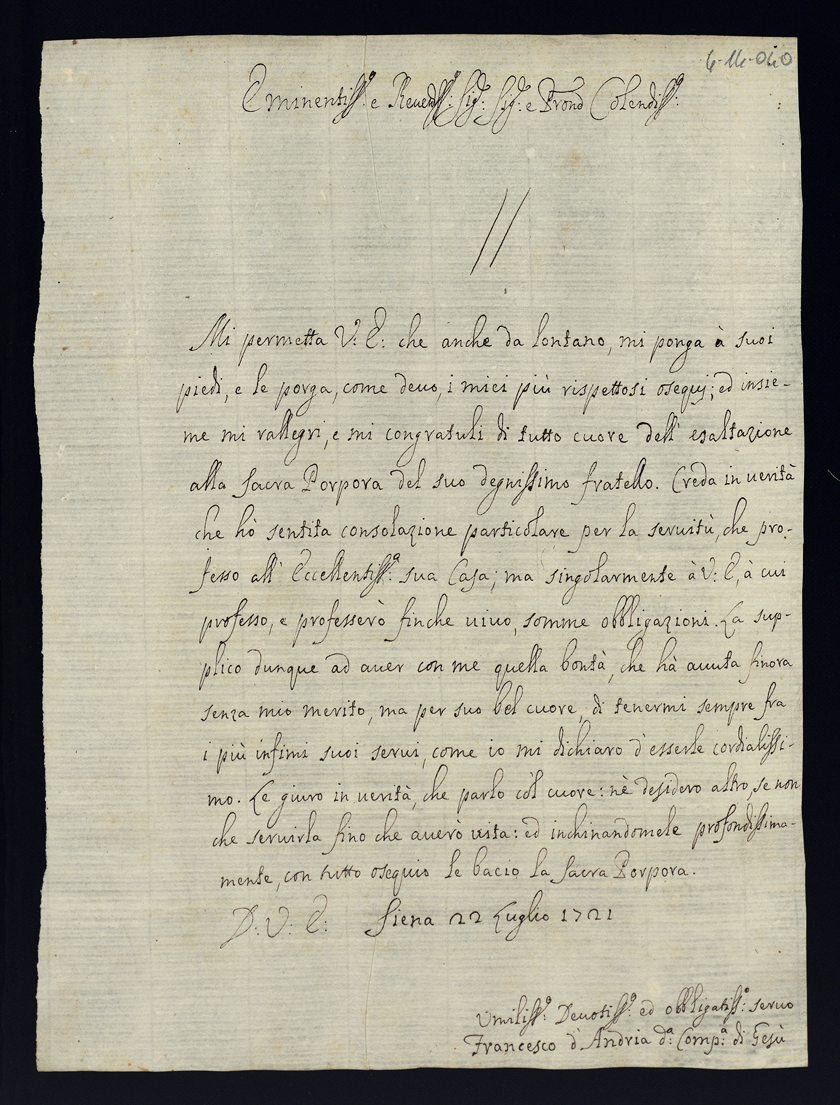 6-14-040
Eminentiss.º e Reverendiss.º Sig.r Sig.r e Prone Colendiss.º
Mi permetta V: E: che anche da lontano, mi ponga à suoi
piedi, e le porga, come devo, i miei più rispettosi ossequj; ed insie-
me mi rallegri, e mi congratuli di tutto cuore dell' esaltazione
alla Sacra Porpora del suo degnissimo fratello. Creda in verità
che hò sentita consolazione particolare per la servitù, che pro-
fesso all' Eccellentiss.ª sua Casa; ma singolarmente à V: E, à cui
professo, e professerò finche vivo, somme obbligazioni. La sup-
plico dunque ad aver con me quella bontà, che hà avuta finora
senza mio merito, ma per suo bel cuore, di tenermi sempre fra
i più infimi suoi servi, come io mi dichiaro d'esserle cordialissi-
mo. Le giuro in verità, che parlo còl cuore: nè desidero altro, se non
che servirla fino che averò vita: ed inchinandomele profondissima-
mente, con tutto osequio le bacio la Sacra Porpora.
D: V: E: Siena 22 Luglio 1721
Umiliss.º Devotiss.º ed obbligatiss.º servo
Francesco d'Andria d.ª Comp.ª di Gesù